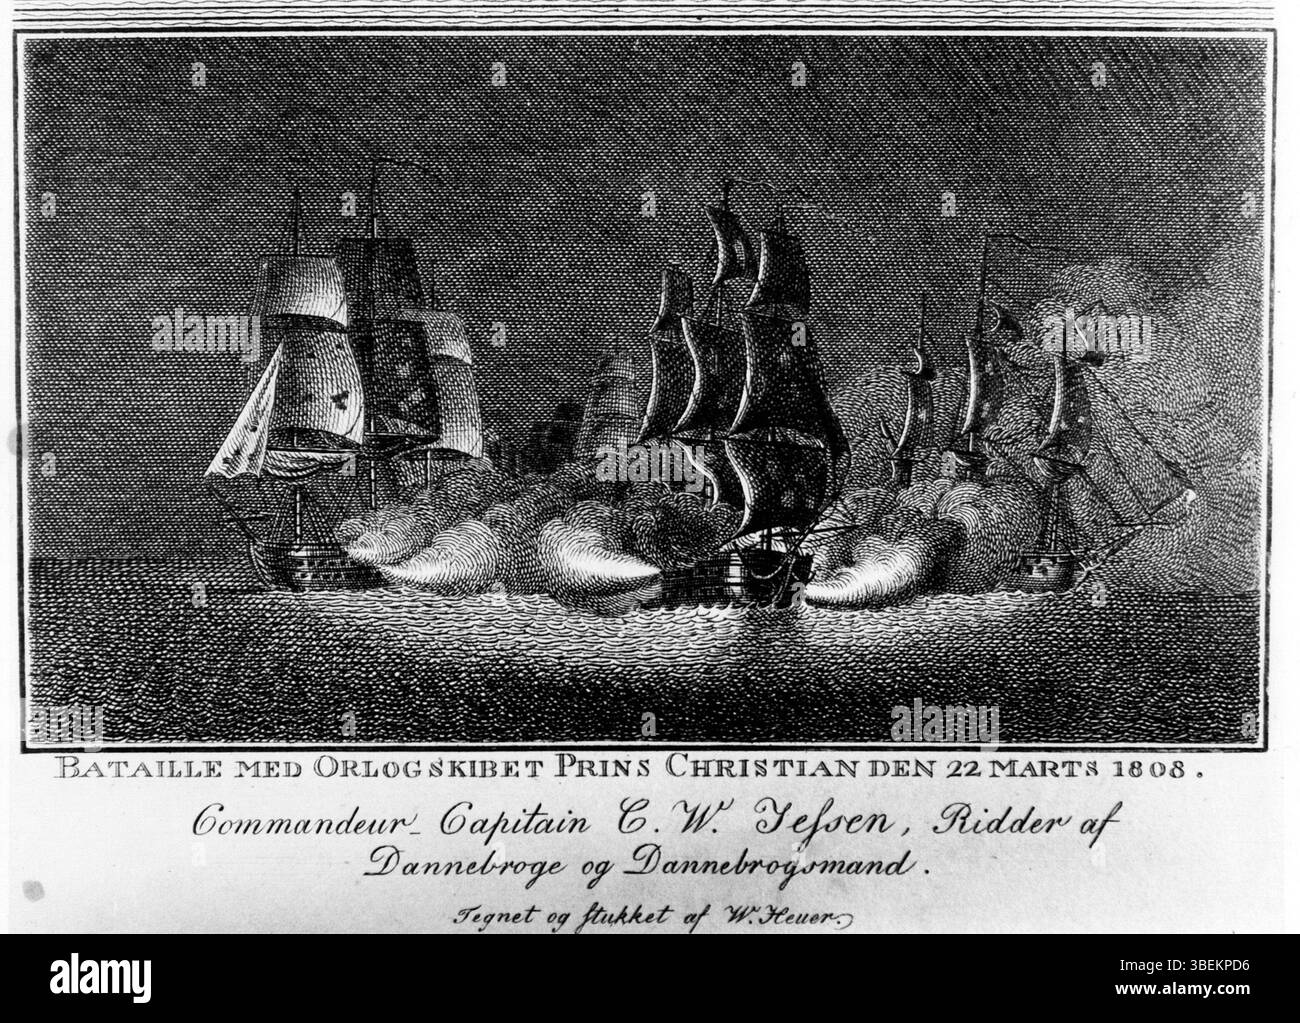 BATAILLE MED ORLOGSKIBET PRINS CHRISTIAN DEN 22 MARTS 1808.
Commandeur-Capitain C. W. Jeſsen, Ridder af
Dannebroge og Dannebrogsmand.
Tegnet og ſtukket af W. Heuer.
alamy
Image ID: 3BEKPD6
www.alamy.com